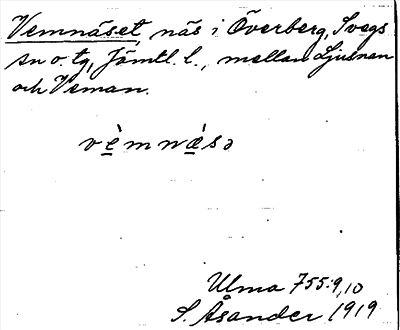 Vemnäset, näs i Överberg, Svegs
sn o. tg, Jämtl. l., mellan Ljusnan
och Veman.
vèmnæ̀sə
Ulma 755:9,10
S. Åsander 1919